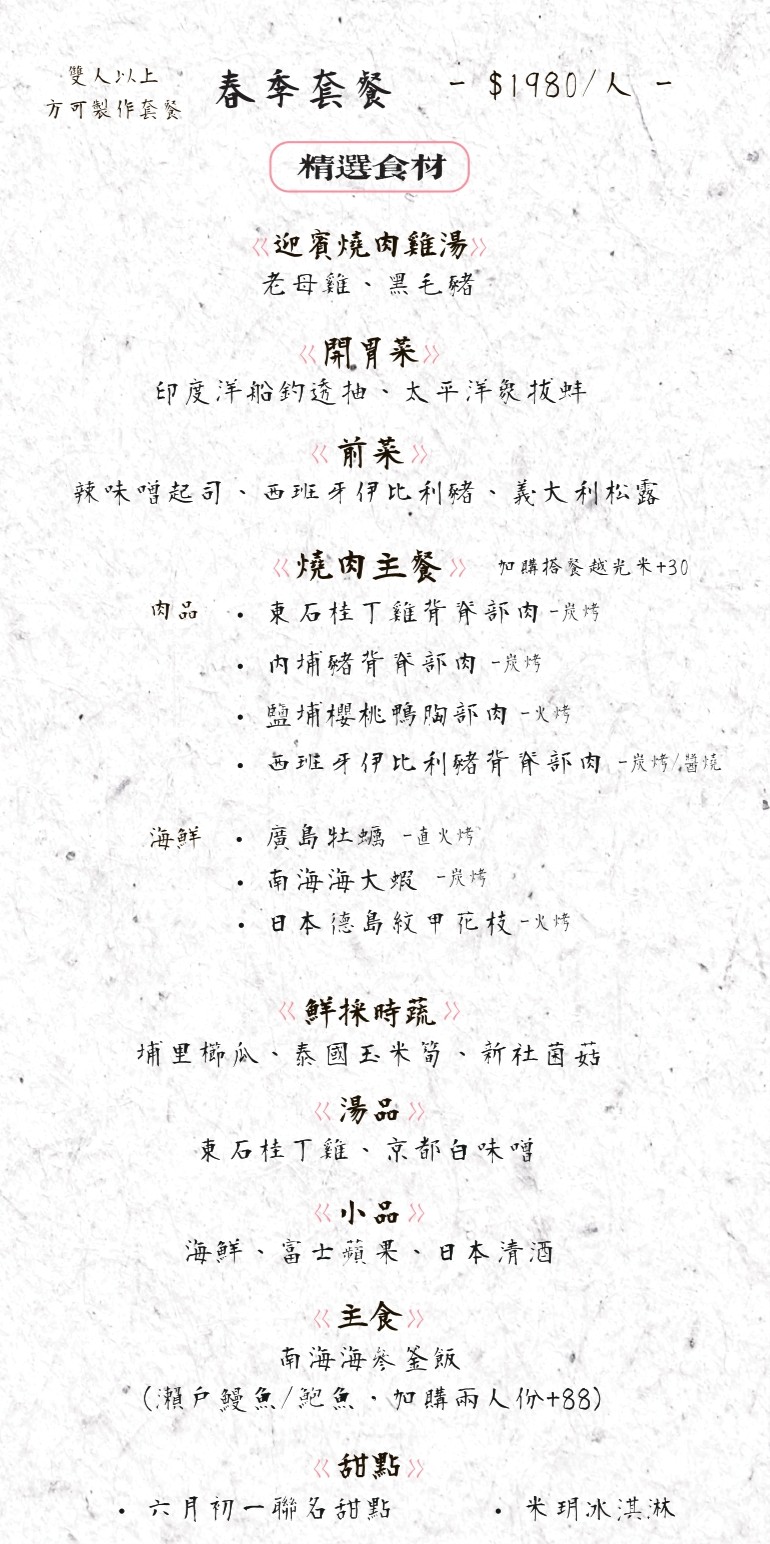 雙人以上
方可製作套餐
春季套餐 - $1980/人 -
精選食材
《迎賓燒肉雞湯》
老母雞、黑毛豬
《開胃菜》
印度洋船釣透抽、太平洋象拔蚌
《前菜》
辣味噌起司、西班牙伊比利豬、義大利松露
《燒肉主餐》 加購搭餐越光米+30
肉品 • 東石桂丁雞背脊部肉-炭烤
• 內埔豬背脊部肉-炭烤
• 鹽埔櫻桃鴨胸部肉-火烤
• 西班牙伊比利豬背脊部肉-炭烤/醬燒
海鮮 • 廣島牡蠣-直火烤
• 南海海大蝦-炭烤
• 日本德島紋甲花枝-火烤
《鮮採時蔬》
埔里櫛瓜、泰國玉米筍、新社菌菇
《湯品》
東石桂丁雞、京都白味噌
《小品》
海鮮、富士蘋果、日本清酒
《主食》
南海海參釜飯
(瀨戶鰻魚/鮑魚，加購兩人份+88)
《甜點》
• 六月初一聯名甜點 • 米玥冰淇淋